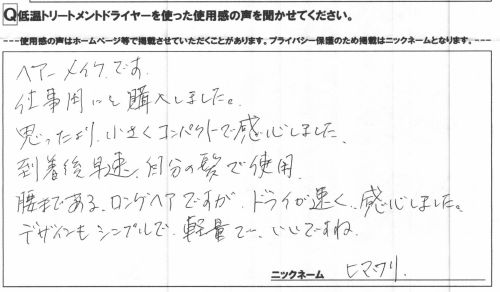 Q低温トリートメントドライヤーを使った使用感の声を聞かせてください。
---使用感の声はホームページ等で掲載させていただくことがあります。プライバシー保護のため掲載はニックネームとなります。---
ヘアーメイクです。
仕事用にと購入しました。
思ったより、小さくコンパクトで感心しました。
到着後早速、自分の髪で使用。
腰まである、ロングヘアですが、ドライが速く、感心しました。
デザインもシンプルで、軽量で、いいですね。
ニックネーム ヒマワリ.